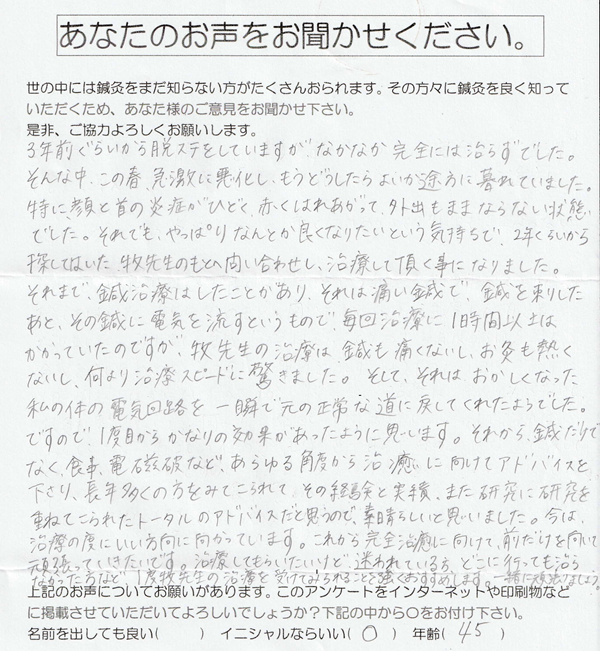 あなたのお声をお聞かせください。
世の中には鍼灸をまだ知らない方がたくさんおられます。その方々に鍼灸を良く知って
いただくため、あなた様のご意見をお聞かせ下さい。
是非、ご協力よろしくお願いします。
3年前ぐらいから脱ステをしていますが、なかなか完全には治らずでした。
そんな中、この春、急激に悪化し、もうどうしたらよいか途方に暮れていました。
特に、顔と首の炎症がひどく、赤くはれあがって、外出もままならない状態
でした。それでも、やっぱりなんとか良くなりたいという気持ちで、2年くらいから
探してはいた牧先生のもとへ問い合わせし、治療して頂く事になりました。
それまで、鍼治療はしたことがあり、それは痛い鍼で、鍼を刺した
あと、その鍼に電気を流すというもので、毎回治療に1時間以上は
かかっていたのですが、牧先生の治療は、鍼も痛くないし、お灸も熱く
ないし、何より治療スピードに驚きました。そして、それは、おかしくなった
私の体の電気回路を一瞬で元の正常な道に戻してくれたようでした。
ですので、1度目からかなりの効果があったように思います。それから、鍼だけで
なく、食事、電磁破など、あらゆる角度から治癒に向けてアドバイスを
下さり、長年多くの方をみてこられて、その経験と実績、また研究に研究を
重ねてこられたトータルのアドバイスだと思うので、素晴らしいと思いました。今は、
治療の度にいい方向に向かっています。これから完全治癒に向けて、前だけを向いて
頑張っていきたいです。治療してもらいたいけど、迷われている方、どこに行っても治ら
なかった方など、1度牧先生の治療を受けてみられることを強くおすすめします。一緒に頑張りましょう。
上記のお声についてお願いがあります。このアンケートをインターネットや印刷物など
に掲載させていただいてよろしいでしょうか?下記の中から○をお付け下さい。
名前を出しても良い( ) イニシャルならいい( ○ ) 年齢( 45 )